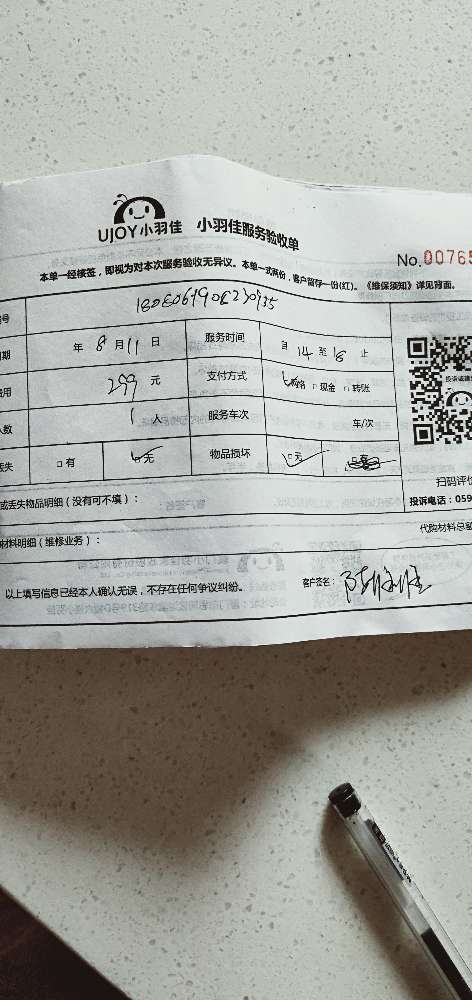 UJOY小羽佳 小羽佳服务验收单
No.00765
本单一经核签，即视为对本次服务验收无异议。本单一式两份，客户留存一份(红)。《维保须知》详见背面。
号
期 年 8 月 11 日 服务时间 自 14 至 18 止
费用 299 元 支付方式 网络 □ 现金 □ 转账
人数 1 人 服务车次 车/次
丢失 □ 有 □ 无 物品损坏 □ 无
或丢失物品明细（没有可不填）：
扫码评价
投诉电话：059
材料明细（维修业务）：
代购材料总额
以上填写信息已经本人确认无误，不存在任何争议纠纷。
客户签名：